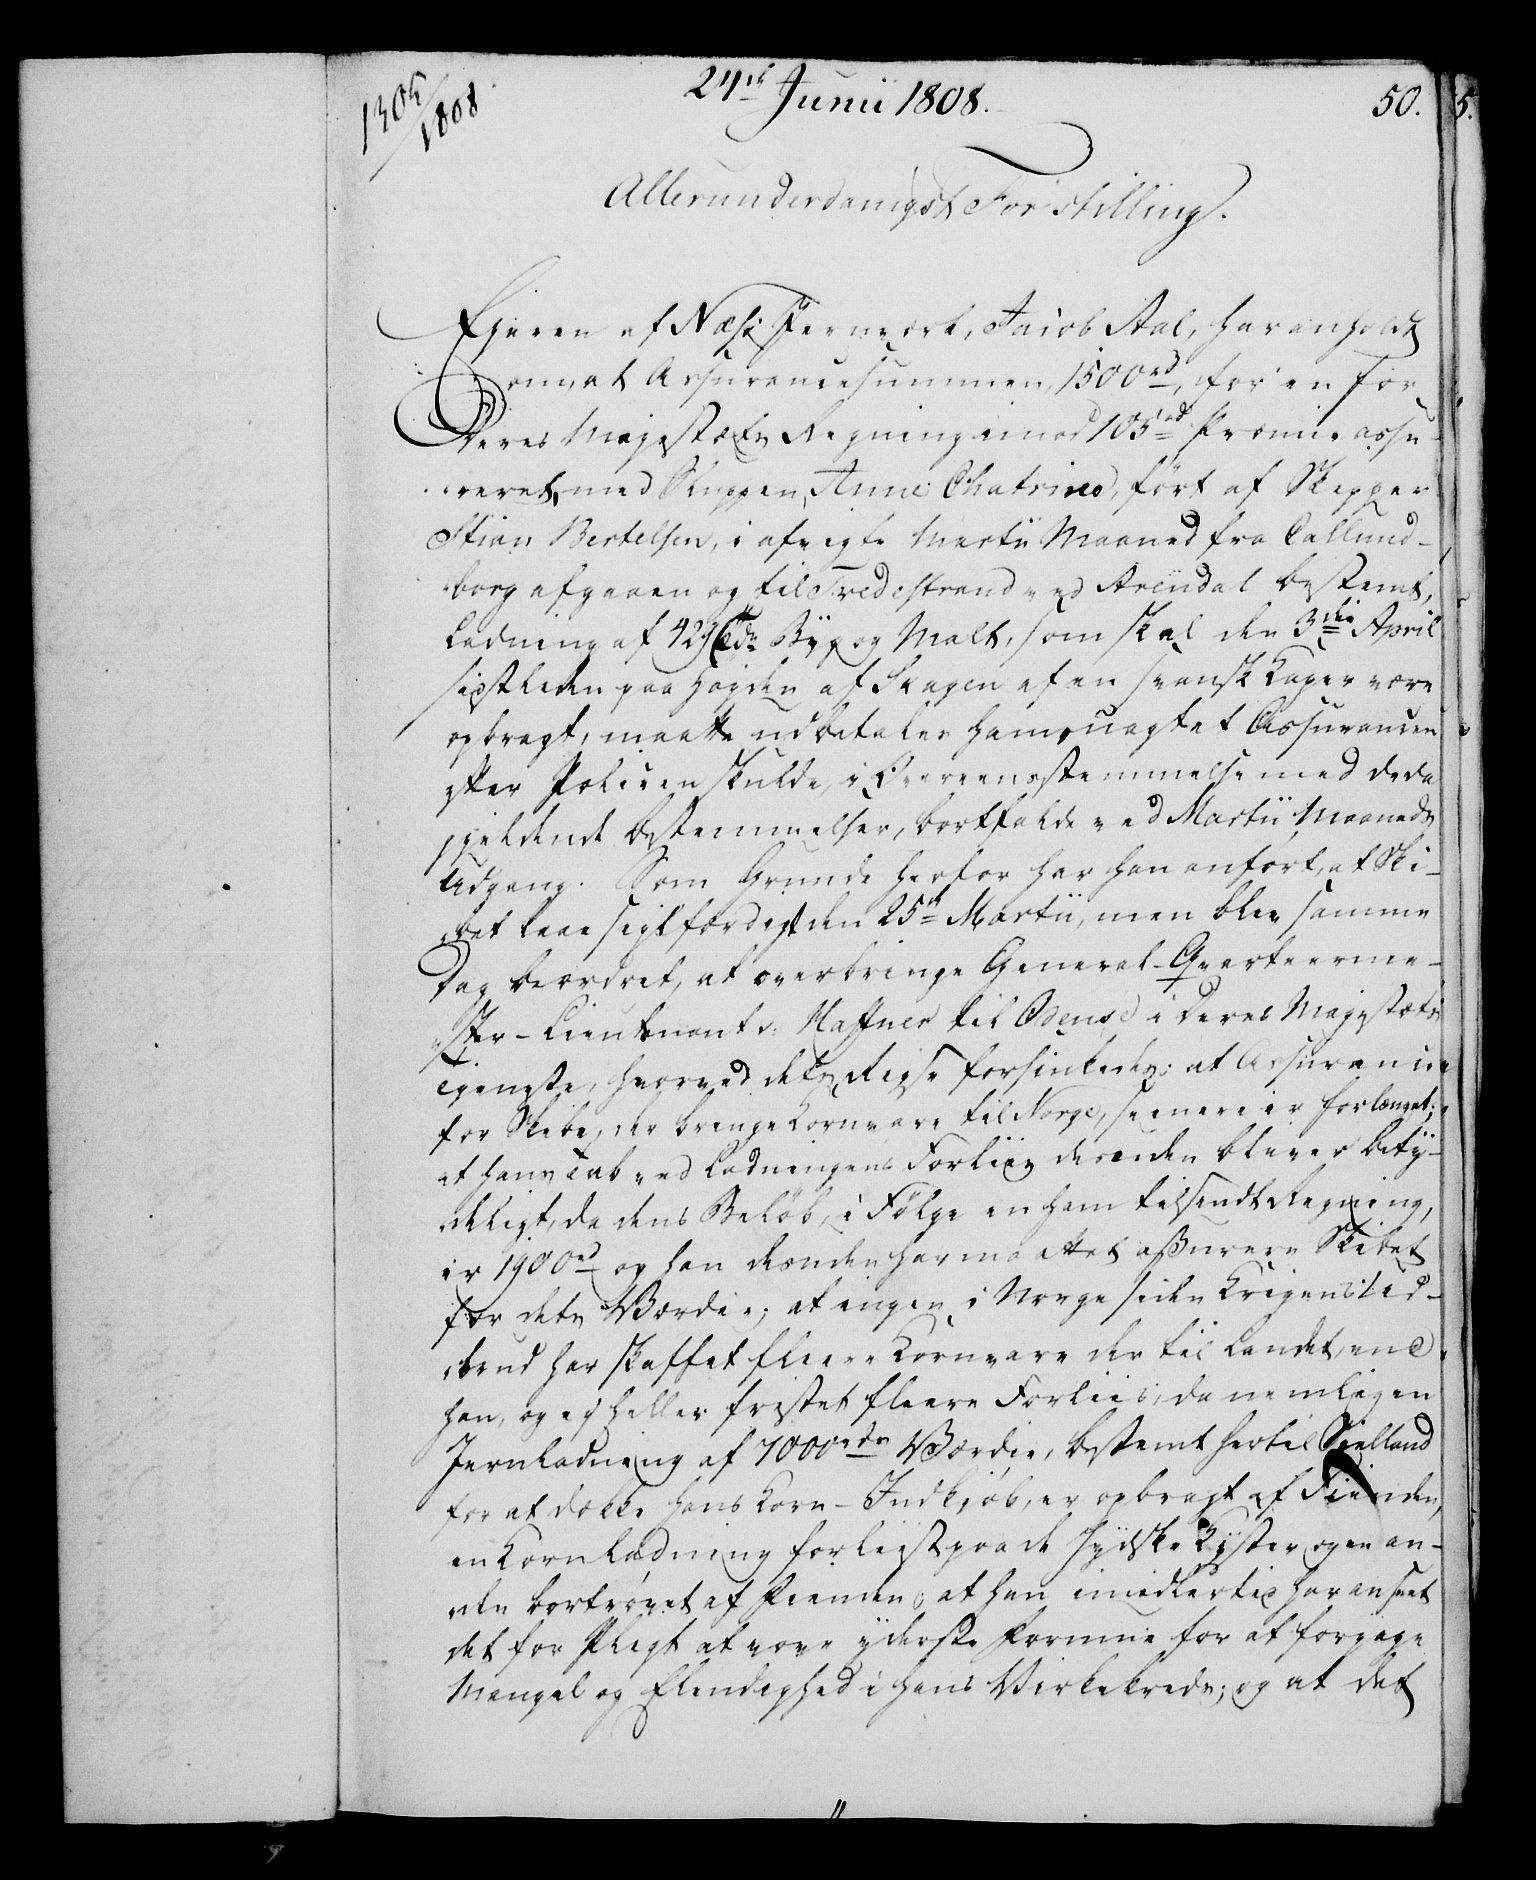 1305/1808
24de Junii 1808.
50.
5.
Allerunderdanigst Forestilling.
Ejeren af Næs Jernværk, Jacob Aal, har anholdt
om, at Assurancesummen, 1500rd, for en for
Deres Majestæts Regning imod 105rd Præmie assu-
reret, med Sluppen, Anne Chatrine, ført af Skipper
Stian Bertelsen, i afvigte Martii Maaned fra Callund-
borg afgaaen og til Tvedestrand ved Arendal bestemt,
Ladning af 429 Tdr Byg og Malt, som skal den 3die April
sidstleden paa Høyden af Skagen af en svensk Kaper være
opbragt, maatte udbetales ham, uagtet Assurancen
efter Policen skulde, i Overeensstemmelse med de da
gieldende Bestemmelser, bortfalde ved Martii Maaneds
Udgang. Som Grunde herfor har han anført, at Ski-
bet laae seilfærdigt den 25de Martii, men blev samme
Dag beordret, at overbringe General-Qvarteerme-
ster-Lieutenant v. Haffner til Odense i Deres Majestæts
Tjeneste, hvorved dets Reise forsinkedes; at Assurance
for Skibe, der bringe Kornvare til Norge, seenere er forlænget;
at hans Tab ved Ladningens Forliis desuden bliver bety-
deligt, da dens Beløb, i Følge en ham tilsendt Regning,
er 1900rd og han desuden har maattet assurere Skibet
for dets Værdie; at ingen i Norge siden Krigens Ud-
brud har skaffet fleere Kornvare der til Landet, end
han, og ej heller fristet fleere Forliis, da nemlig en
Jernladning af 7000rdrs Værdie, bestemt hertil Siælland
for at dække hans Korn-Indkjøb, er opbragt af Fienden,
en Kornladning forliist paa de Jydske Kyster, og en an-
den bortrøvet af Fienden; at han imidlertid har anseet
det for Pligt at vove yderste Formue for at forjage
Mangel og Elendighed i hans Virkekreds; og at det